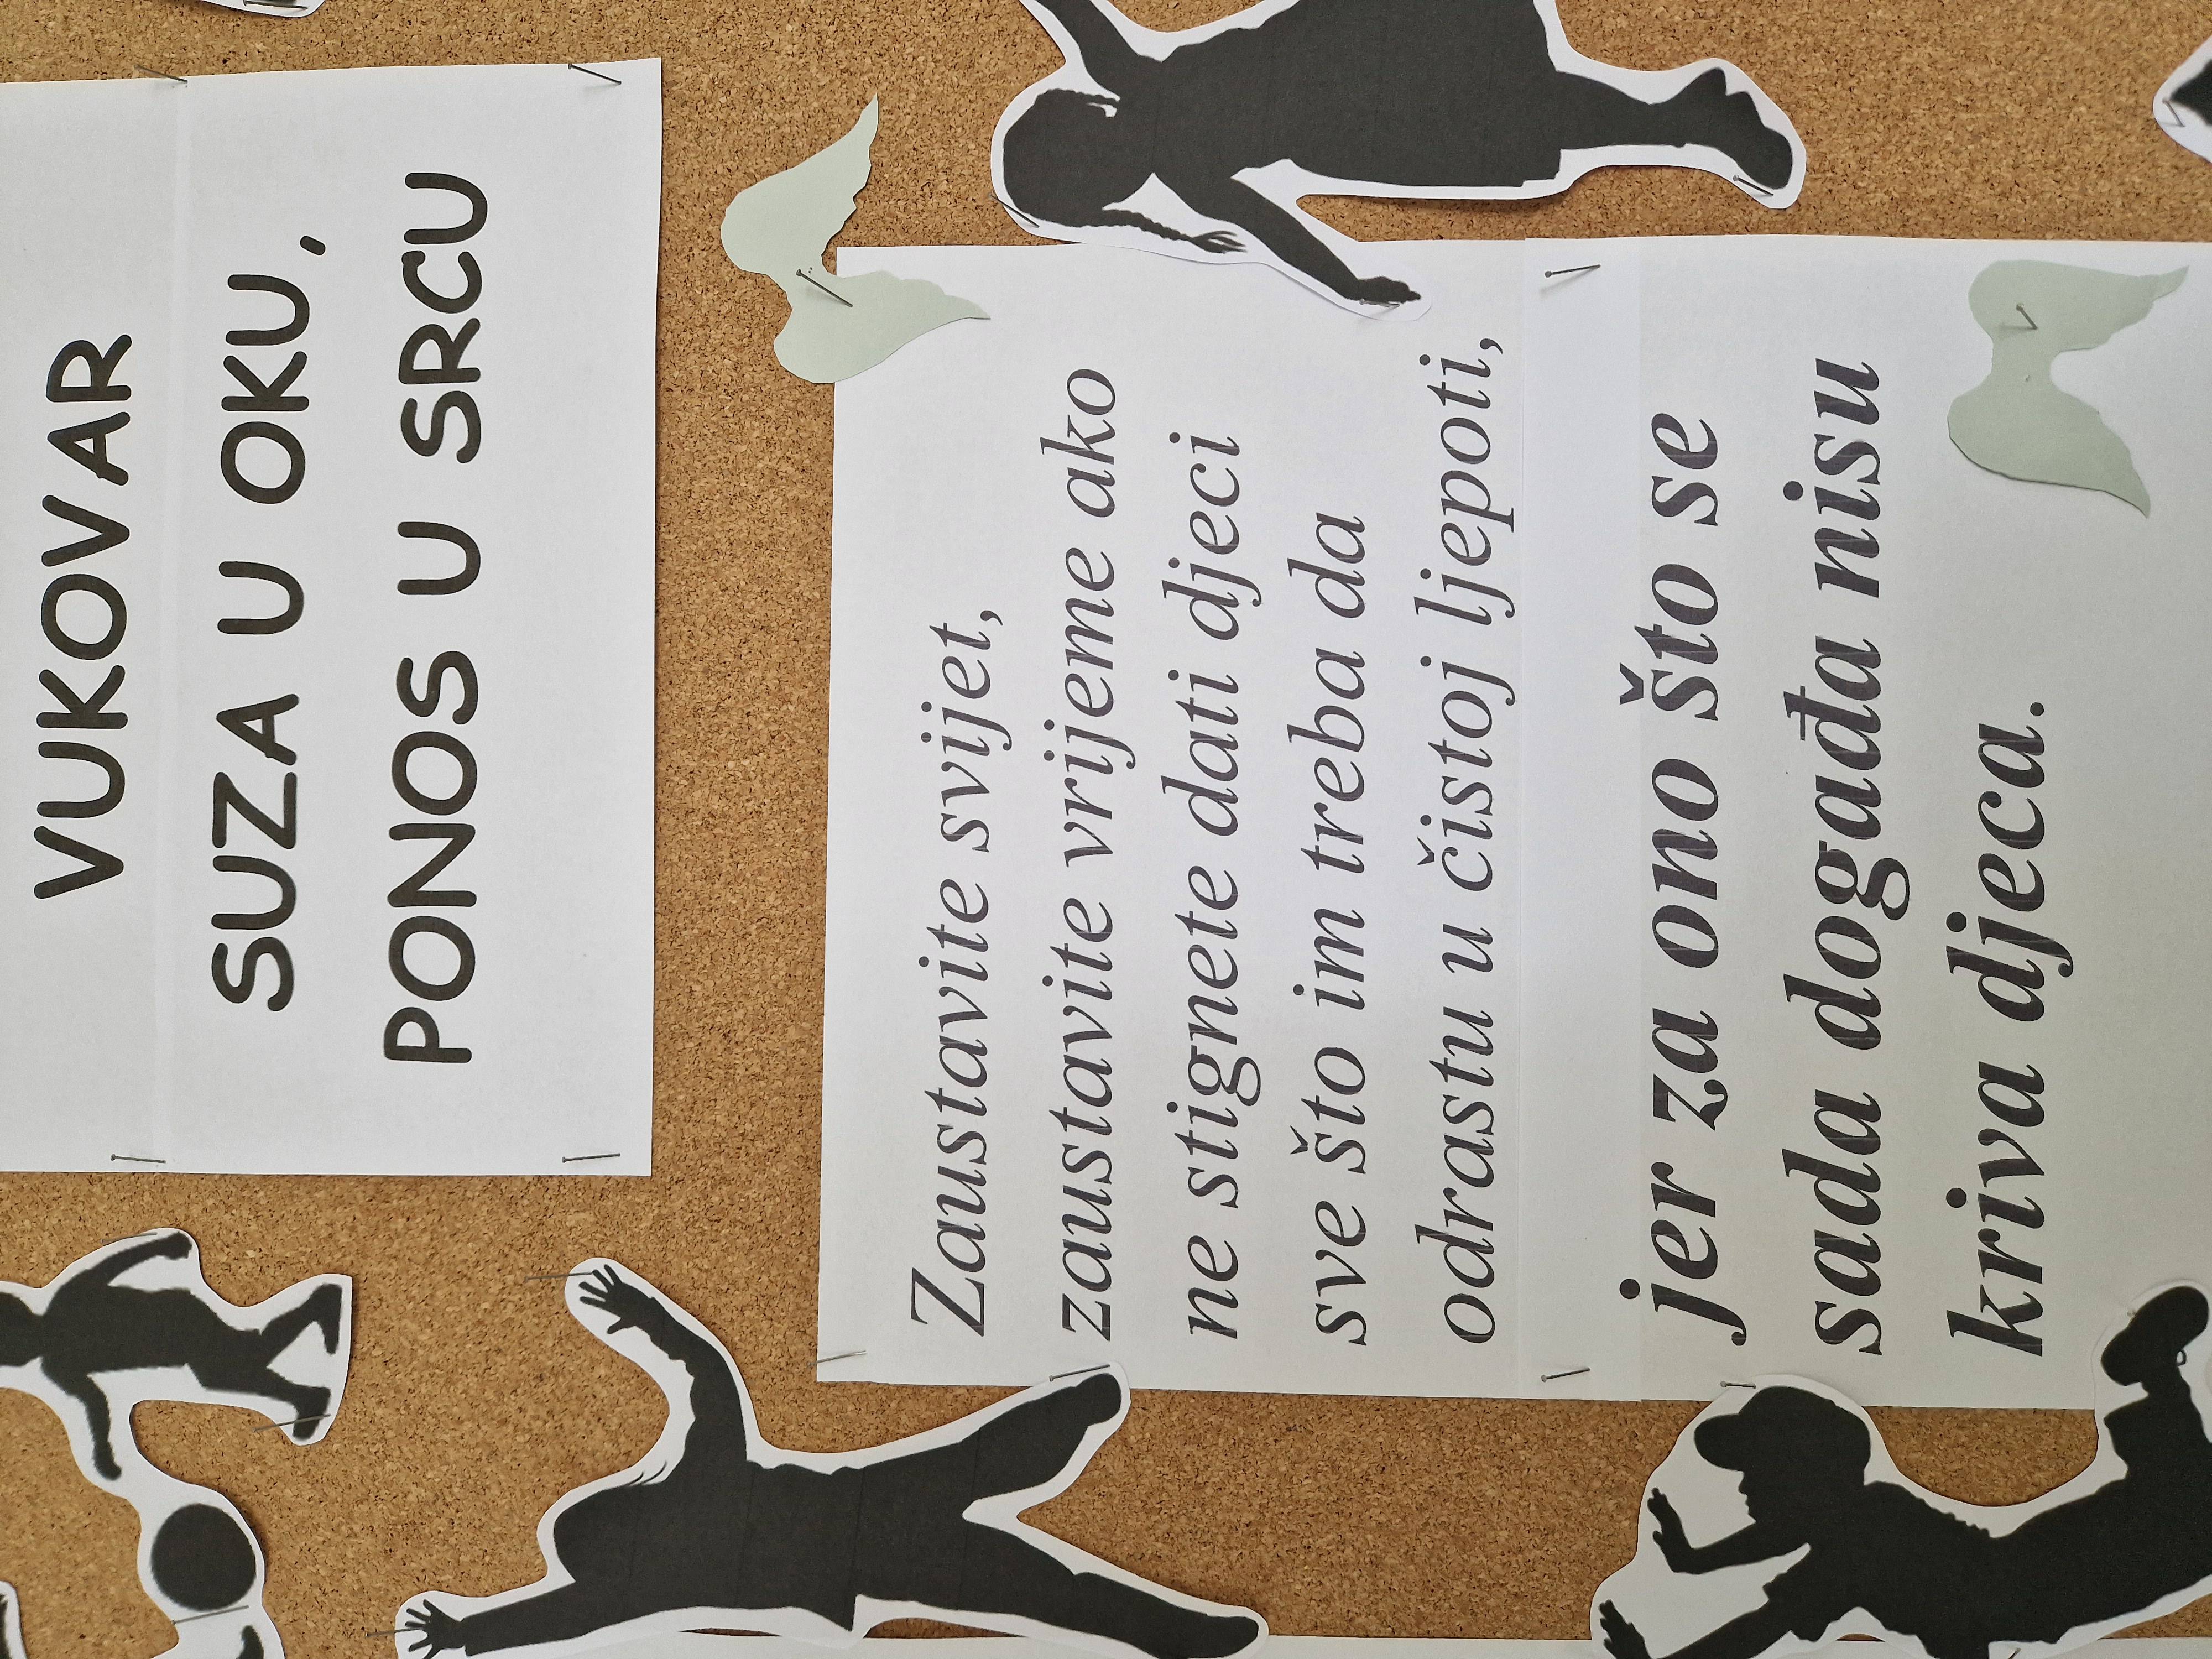 VUKOVAR
SUZA U OKU,
PONOS U SRCU
Zaustavite svijet,
zaustavite vrijeme ako
ne stignete dati djeci
sve što im treba da
odrastu u čistoj ljepoti,
jer za ono što se
sada događa nisu
kriva djeca.